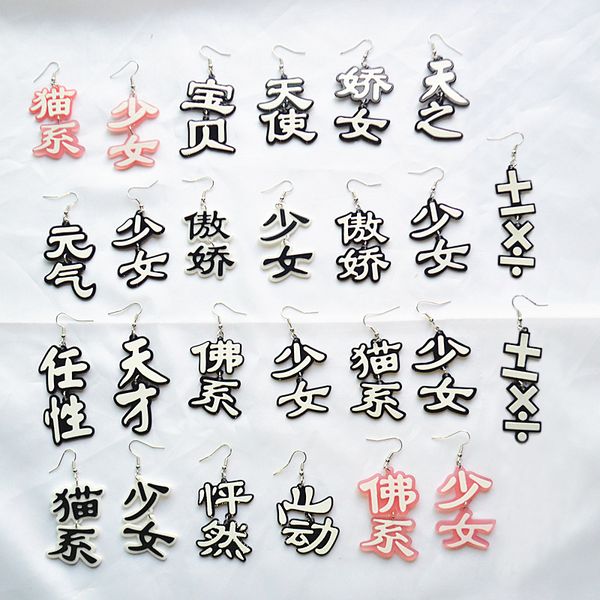 猫系 少女 宝贝 天使 娇女 天之
元气 少女 傲娇 少女 傲娇 少女 +-×÷
任性 天才 佛系 少女 猫系 少女 +-×÷
猫系 少女 怦然 心动 佛系 少女